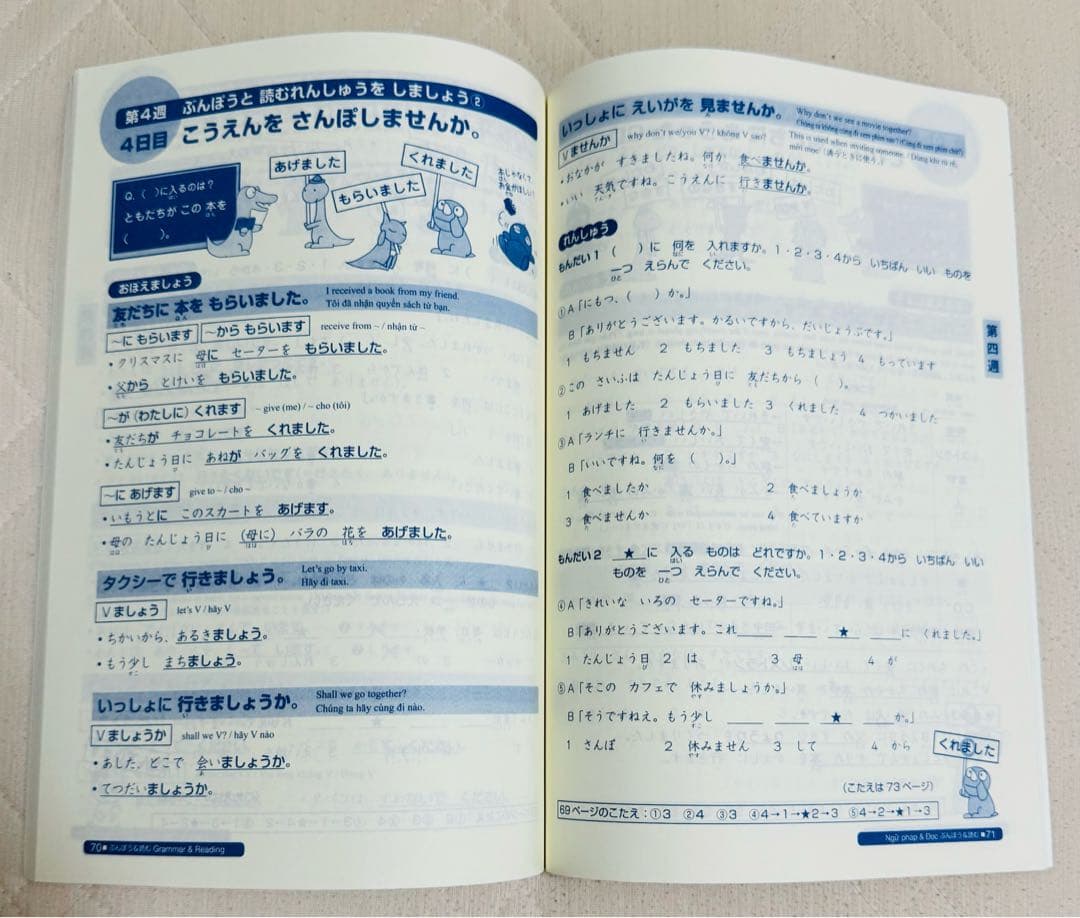 第4週 ぶんぽうと 読むれんしゅうを しましょう②
4日目 こうえんを さんぽしませんか。
Q.( )に入るのは?
はい
ともだちが この 本を
ほん
( )。
あげました
もらいました
くれました
本じゃなくて、
お金がほしい!
おぼえましょう
友だちに 本を もらいました。
とも ほん
I received a book from my friend.
Tôi đã nhận quyển sách từ bạn.
~に もらいます ~から もらいます receive from ~ / nhận từ ~
・クリスマスに 母に セーターを もらいました。
はは
・父から とけいを もらいました。
ちち
~が (わたしに) くれます ~ give (me) / ~ cho (tôi)
・友だちが チョコレートを くれました。
とも
・たんじょう日に あねが バッグを くれました。
び
~に あげます give to ~ / cho ~
・いもうとに このスカートを あげます。
・母の たんじょう日に (母に) バラの 花を あげました。
はは び はは はな
タクシーで 行きましょう。
い
Let's go by taxi.
Hãy đi taxi.
Vましょう let's V / hãy V
・ちかいから、あるきましょう。
・もう少し まちましょう。
すこ
いっしょに 行きましょうか。
い
Shall we go together?
Chúng ta hãy cùng đi nào.
Vましょうか shall we V? / hãy V nào
・あした、どこで 会いましょうか。
あ
・てつだいましょうか。
70 ぶんぽう&読む Grammar & Reading
いっしょに えいがを 見ませんか。
み
Why don't we see a movie together?
Vませんか why don't we/you V? / không V sao?
This is used when inviting someone. / Dùng khi rủ rê,
mời mọc (誘うときに使う。)
・おなかが すきましたね。何か 食べませんか。
なに た
・いい 天気ですね。こうえんに 行きませんか。
てんき い
れんしゅう
もんだい1 ( )に 何を 入れますか。1・2・3・4から いちばん いい ものを
なに い
一つ えらんで ください。
ひと
①A「にもつ、( )か。」
B「ありがとうございます。かるいですから、だいじょうぶです。」
1 もちません 2 もちました 3 もちましょう 4 もっています
②この さいふは たんじょう日に 友だちから ( )。
び とも
1 あげました 2 もらいました 3 くれました 4 つかいました
③A「ランチに 行きませんか。」
い
B「いいですね。何を ( )。」
なに
1 食べましたか 2 食べましょうか
た た
3 食べませんか 4 食べていますか
た た
もんだい2 ★ に 入る ものは どれですか。1・2・3・4から いちばん いい
はい
ものを 一つ えらんで ください。
ひと
④A「きれいな いろの セーターですね。」
B「ありがとうございます。これ ___ ___ ★ ___ に くれました。」
1 たんじょう日 2 は 3 母 4 が
び はは
⑤A「そこの カフェで 休みましょうか。」
やす
B「そうですねえ。もう少し ___ ___ ★ ___ か。」
すこ
1 さんぽ 2 休みません 3 して 4 から
やす
くれました
(こたえは 73ページ)
69ページのこたえ:①3 ②4 ③3 ④4→1→★2→3 ⑤4→2→★1→3
Ngữ pháp & Đọc ぶんぽう&読む 71
第四週